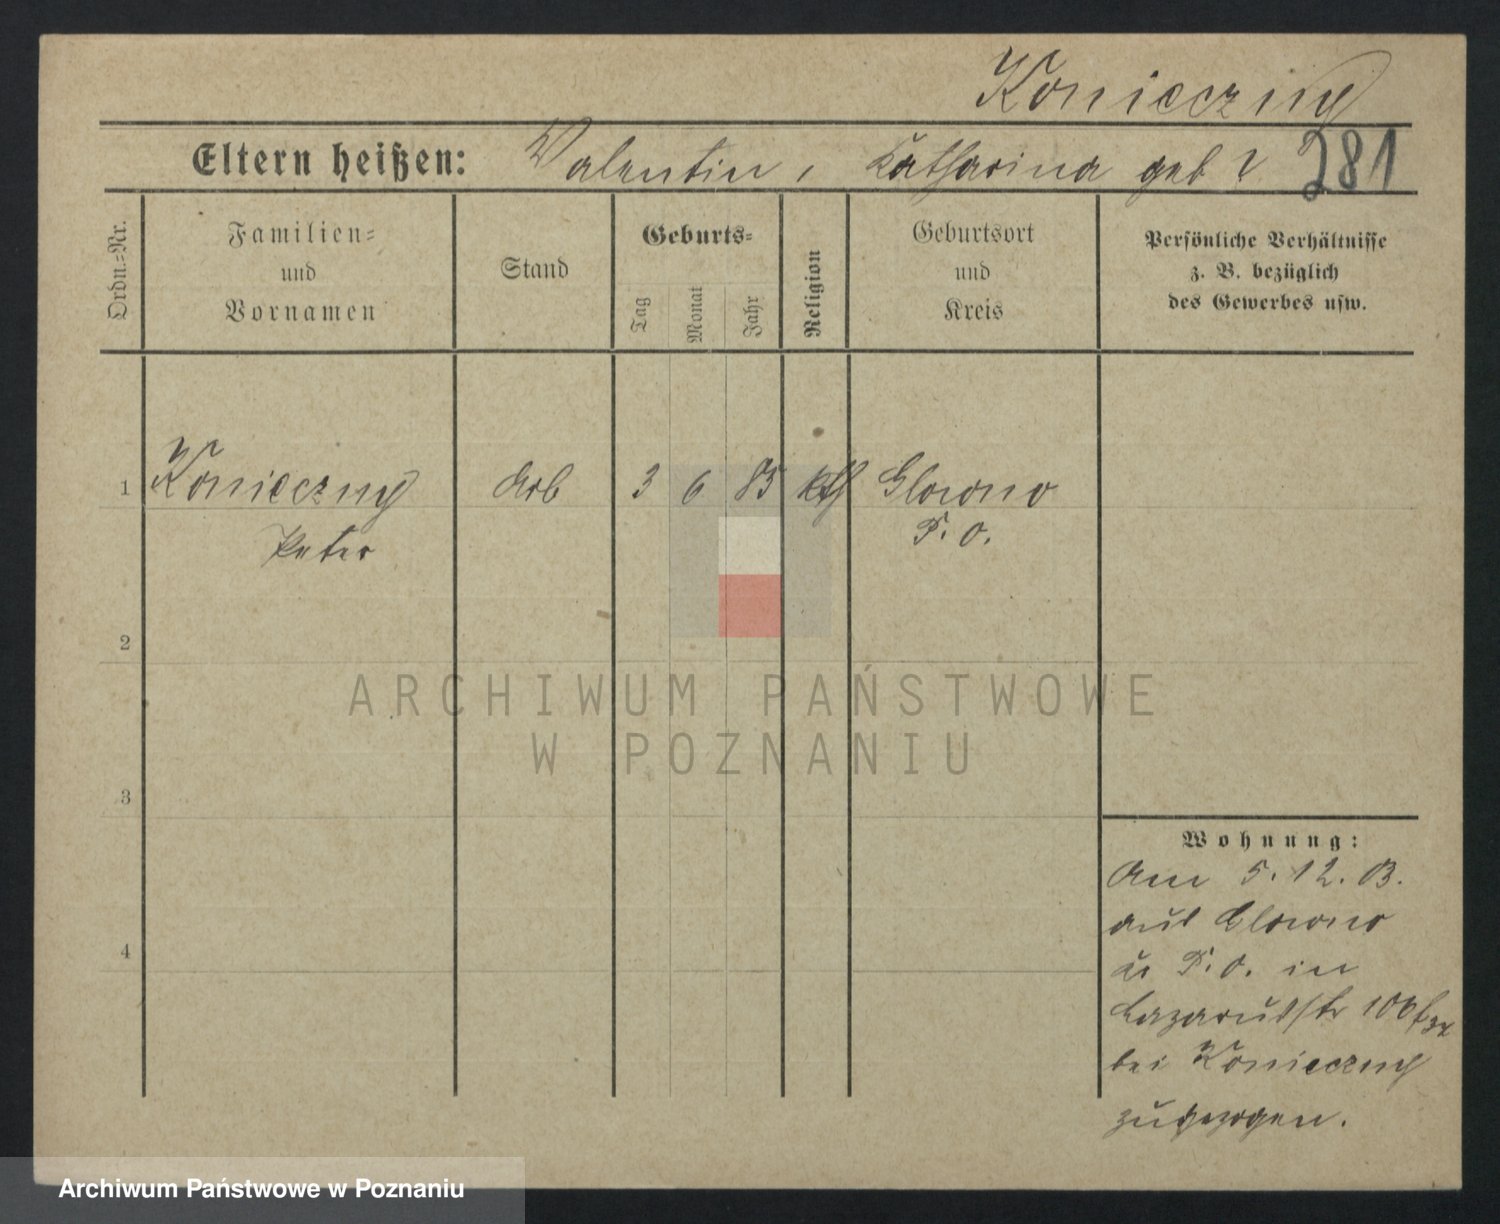 Konieczny
Eltern heißen: Valentin, Katharina geb ? 281
Ordn.=Nr.
Familien=
und
Vornamen
Stand
Geburts=
Tag
Monat
Jahr
Religion
Geburtsort
und
Kreis
Persönliche Verhältnisse
z. B. bezüglich
des Gewerbes usw.
1 Konieczny Arb 3 6 83 kth Glowno
Peter P. O.
2
3
4
Wohnung:
Am 5. 12. 03.
aus Glowno
Kr P. O. in
Lazarusstr 10b
bei Konieczny
zugezogen.
ARCHIWUM PAŃSTWOWE
W POZNANIU
Archiwum Państwowe w Poznaniu